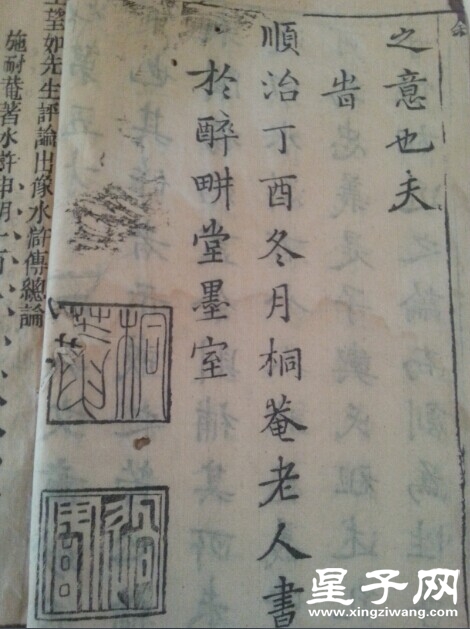 之意也夫
旹
順治丁酉冬月桐菴老人書
於醉畊堂墨室
桐菴
王望如先生評論出像水滸傳總論
施耐菴著水滸申明一百
星子网
www.xingziwang.com